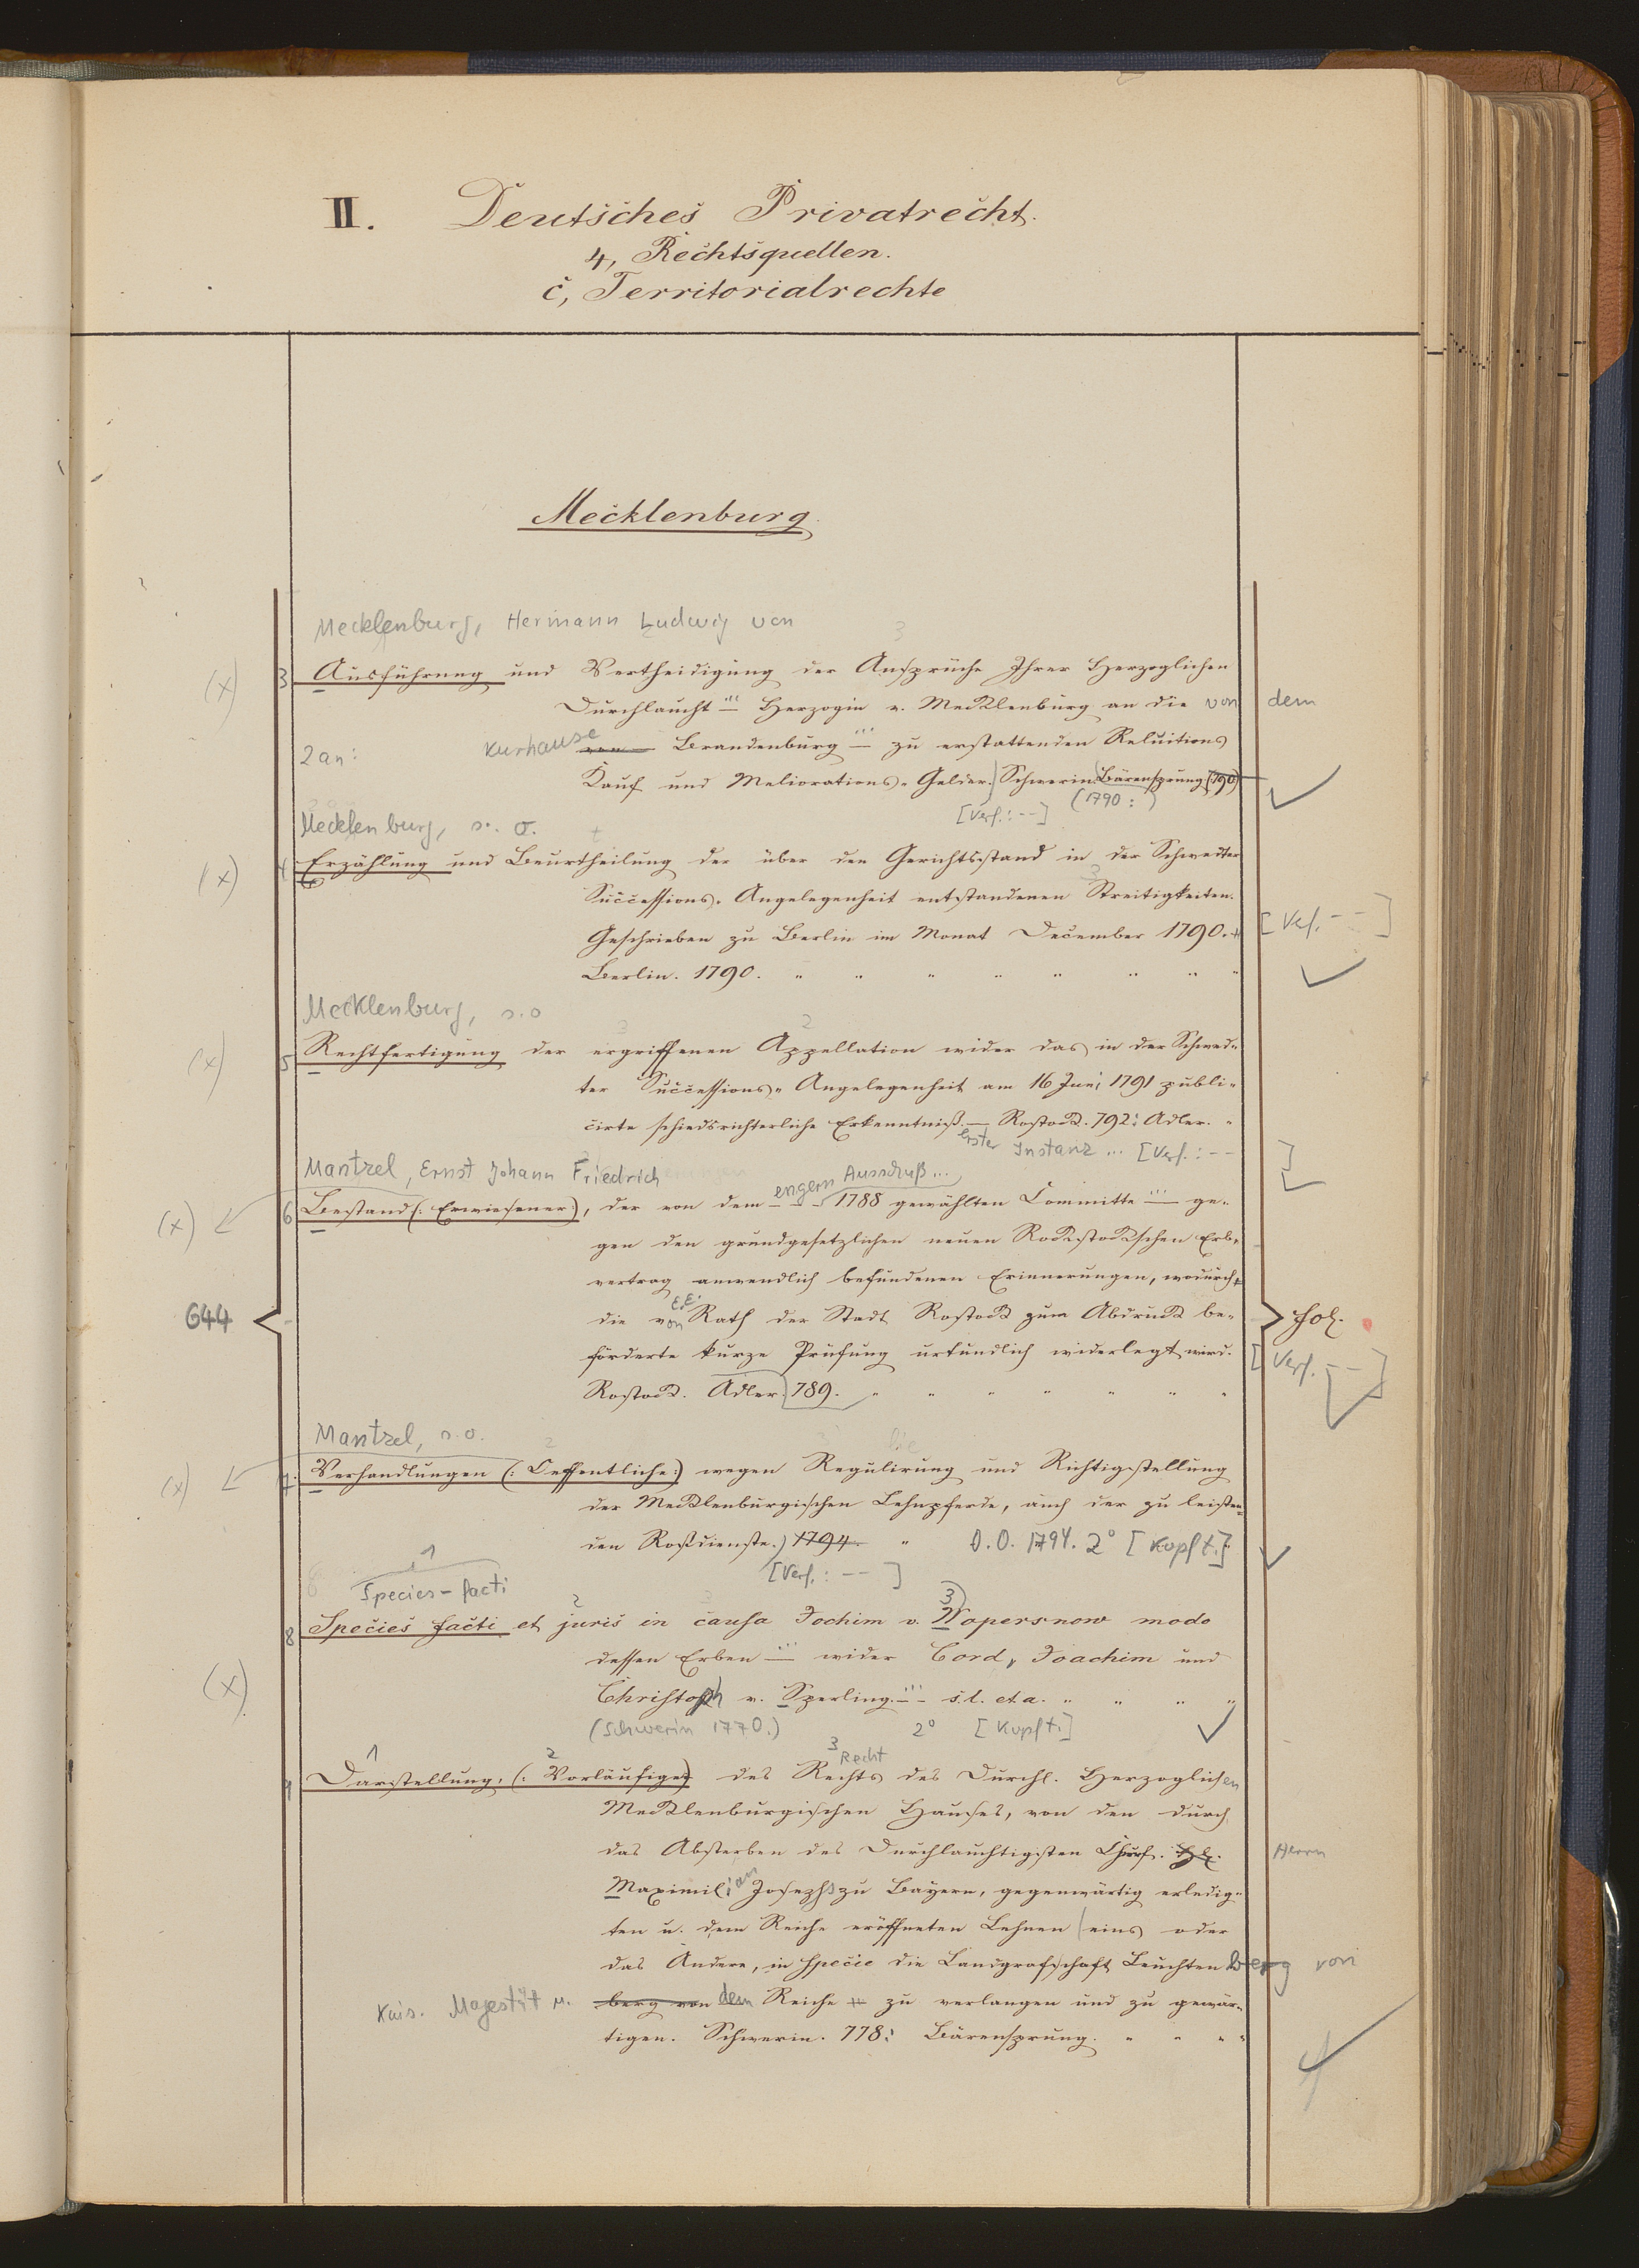 II. Deutsches Privatrecht.
4, Rechtsquellen.
c, Territorialrechte
Mecklenburg.
Mecklenburg, Hermann Ludwig von
(x) 3 Ausführung und Vertheidigung der Ansprüche Ihrer Herzoglichen
Durchlaucht ... Herzogin v. Mecklenburg an die von dem
2 an: Kurhause von Brandenburg ... zu erstattenden Reluitions
Kauf und Meliorations-Gelder.) Schwerin: Bärensprung (790)
[Verf.: --] (1790: )
Mecklenburg, s. o.
(x) 4 Erzählung und Beurtheilung der über den Gerichtsstand in der Schwedter
Successions-Angelegenheit entstandenen Streitigkeiten.
Geschrieben zu Berlin im Monat December 1790. [Verf. --]
Berlin. 1790. " " " " " " " "
Mecklenburg, s. o
(x) 5 Rechtfertigung der ergriffenen Appellation wider das in der Schwed-
ter Successions-Angelegenheit am 16 Juni 1791 publi-
cirte schiedsrichterliche Erkenntniß. — Rostock. 792: Adler. "
erster Instanz ... [Verf.: -- ]
Mantzel, Ernst Johann Friedrich
engern Ausschuß...
(x) 6 Bestand (: Erwiesener:), der von dem --- 1788 gewählten Committe ... ge-
gen den grundgesetzlichen neuen Rostockschen Erb-
vertrag anwendlich befundenen Erinnerungen, wodurch
644 die von E.E. Rath der Stadt Rostock zum Abdruck be- fol.
förderte kurze Prüfung urkundlich widerlegt wird. [Verf. --]
Rostock. Adler. 789. " " " " " " "
Mantzel, s. o.
(x) 7. Verhandlungen (: Oeffentliche:) wegen Regulirung und Richtigstellung
der Mecklenburgischen Lehnpferde, auch der zu leisten-
den Roßdienste.) 1794. " O. O. 1794. 2° [Kopft.]
[Verf.: -- ]
1
Species-facti
8 Species facti et juris in causa Jochim v. Wopersnow modo
dessen Erben ... wider Cord, Joachim und
(x) Christoph v. Sperling. ... s. l. et a. " " " "
(Schwerin 1770.) 2° [Kopft.]
1 2 3 Recht
9 Darstellung, (: Vorläufige:) des Rechts des Durchl. Herzoglichen
Mecklenburgischen Hauses, von den durch
das Absterben des Durchlauchtigsten Churf. H. Herrn
Maximilian Josephs zu Bayern, gegenwärtig erledig-
ten u. dem Reiche eröffneten Lehnen eins oder
das Andere, in specie die Landgrafschaft Leuchtenberg von
Kais. Majestät u. berg von dem Reiche zu verlangen und zu gewär-
tigen. Schwerin. 778: Bärensprung. " " " "